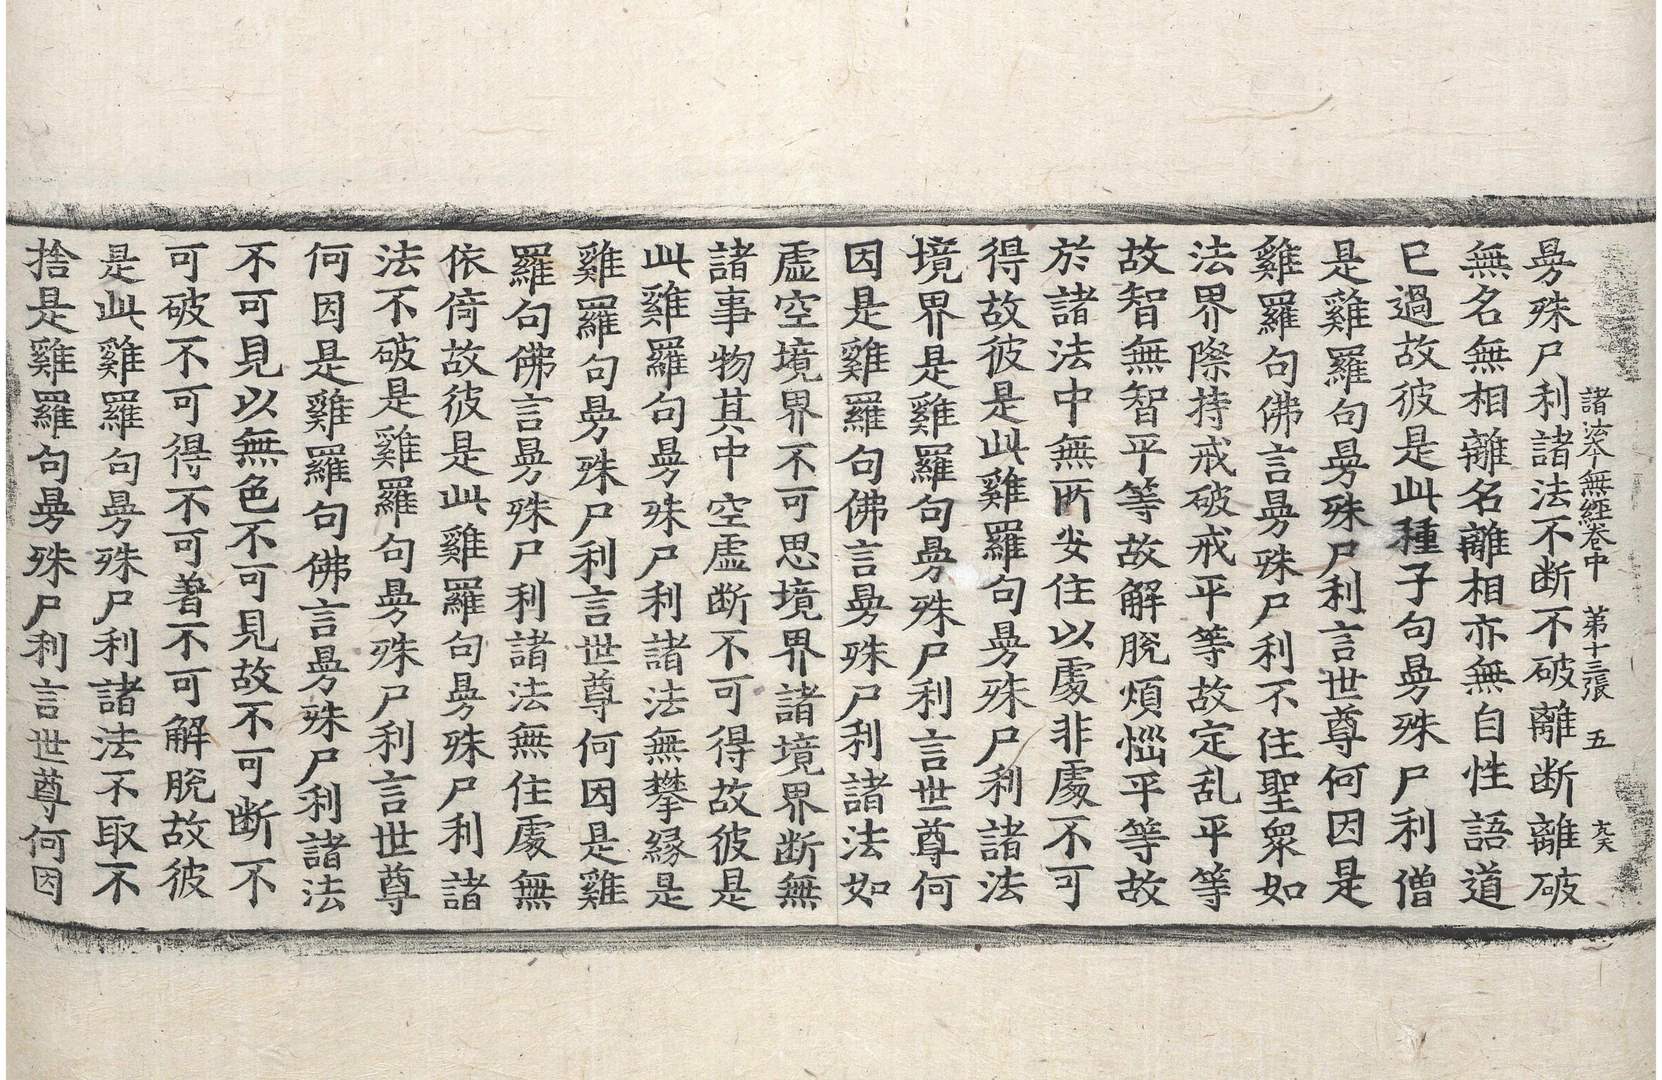 諸法本無經卷中 第十三張 五
曼殊尸利諸法不断不破離断離破
無名無相離名離相亦無自性語道
已過故彼是此種子句曼殊尸利僧
是雞羅句曼殊尸利言世尊何因是
雞羅句佛言曼殊尸利不住聖衆如
法界際持戒破戒平等故定乱平等
故智無智平等故解脫煩惱平等故
於諸法中無所安住以處非處不可
得故彼是此雞羅句曼殊尸利諸法
境界是雞羅句曼殊尸利言世尊何
因是雞羅句佛言曼殊尸利諸法如
虛空境界不可思境界諸境界断無
諸事物其中空虛断不可得故彼是
此雞羅句曼殊尸利諸法無攀緣是
雞羅句曼殊尸利言世尊何因是雞
羅句佛言曼殊尸利諸法無住處無
依倚故彼是此雞羅句曼殊尸利諸
法不破是雞羅句曼殊尸利言世尊
何因是雞羅句佛言曼殊尸利諸法
不可見以無色不可見故不可断不
可破不可得不可著不可解脫故彼
是此雞羅句曼殊尸利諸法不取不
捨是雞羅句曼殊尸利言世尊何因